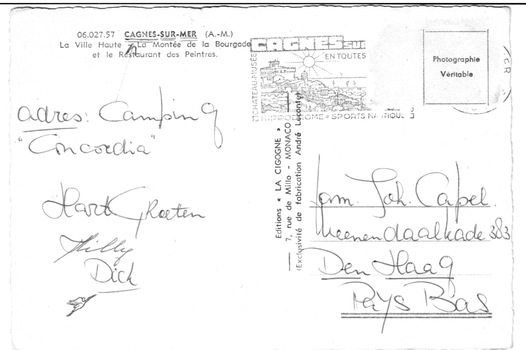 06.027.57 CAGNES-SUR-MER (A.-M.)
La Ville Haute - La Montée de la Bourgade
et le Restaurant des Peintres.
adres: Camping
"Concordia"
Hart. Groeten
Willy
Dick
CAGNES SUR
EN TOUTES
CHATEAU MUSÉE
HIPPODROME • SPORTS NAUTIQUES
Photographie
Véritable
Editions « LA CIGOGNE »
7, rue de Millo - MONACO
Exclusivité de fabrication André Leconte
Fam. Joh. Capel.
383
Den Haag
Pays Bas